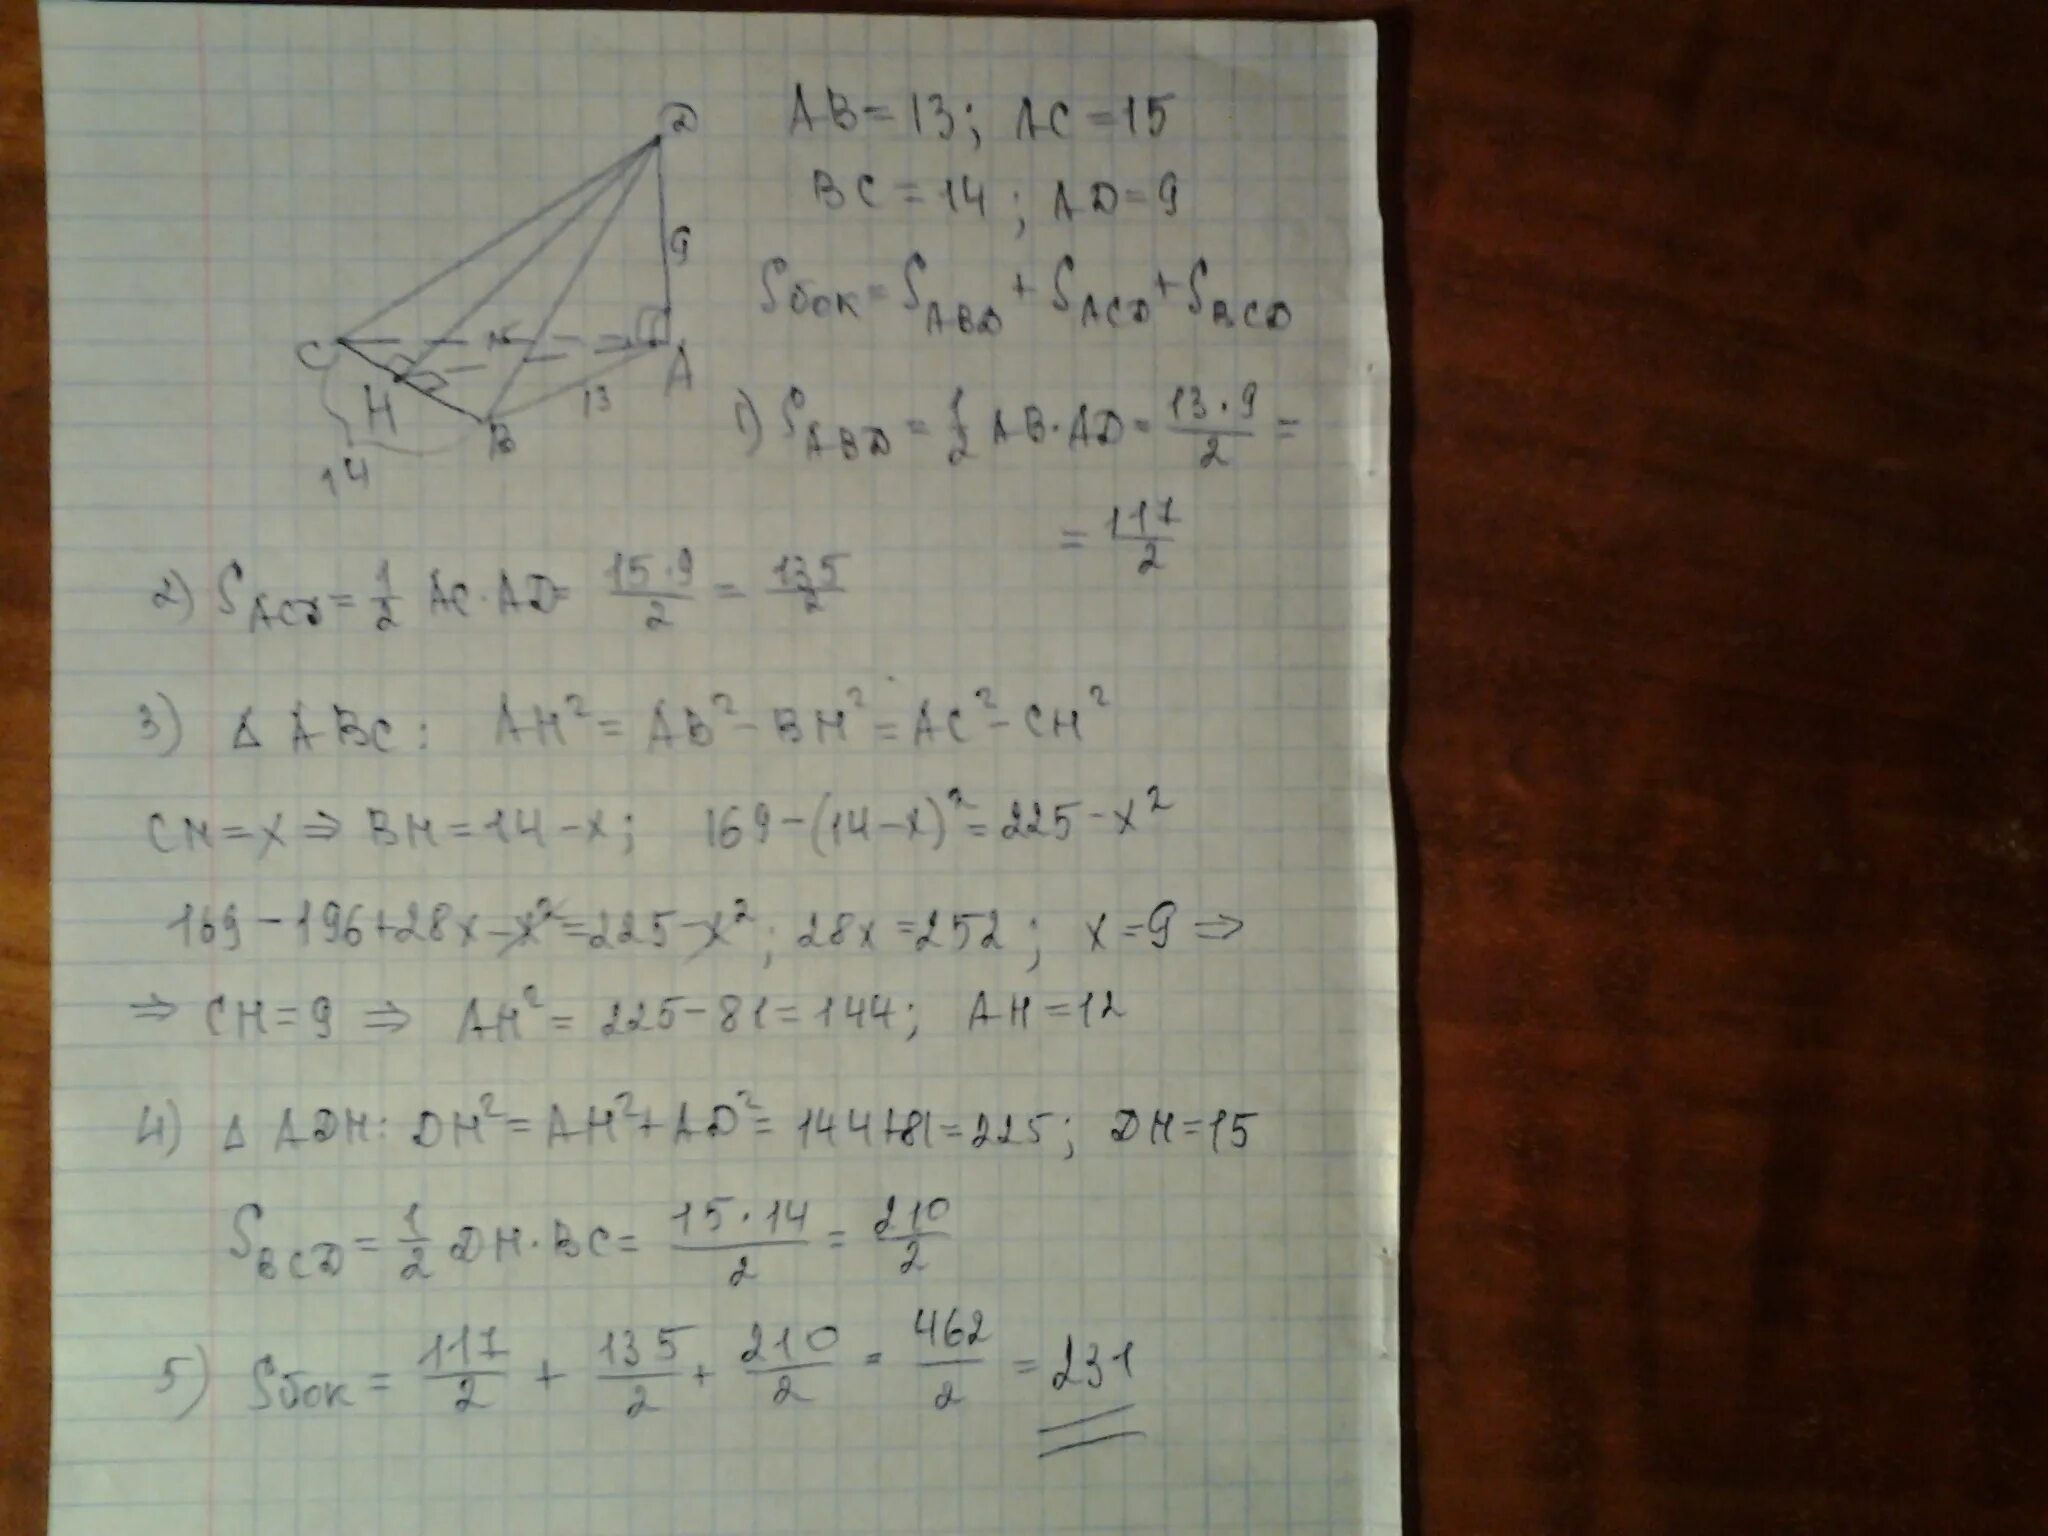 D
AB = 13; AC = 15
BC = 14; AD = 9
9
Sбок = S_ABD + S_ACD + S_BCD
C
15
A
H
13
B
14
1) S_ABD = 1/2 AB · AD = 13 · 9/2 =
= 117/2
2) S_ACD = 1/2 AC · AD = 15 · 9/2 = 135/2
3) Δ ABC: AH² = AB² - BH² = AC² - CH²
CH = x ⇒ BH = 14 - x; 169 - (14 - x)² = 225 - x²
169 - 196 + 28x - x² = 225 - x²; 28x = 252; x = 9 ⇒
⇒ CH = 9 ⇒ AH² = 225 - 81 = 144; AH = 12
4) Δ ADH: DH² = AH² + AD² = 144 + 81 = 225; DH = 15
S_BCD = 1/2 DH · BC = 15 · 14/2 = 210/2
5) Sбок = 117/2 + 135/2 + 210/2 = 462/2 = 231